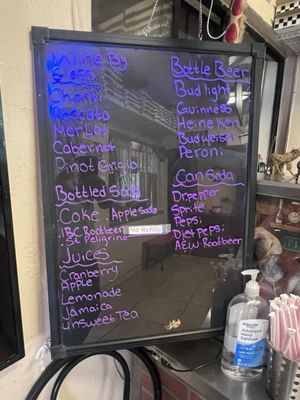 Wine By
Glass
Chardi
Moscato
Merlot
Cabernut
Pinot Grigio
Bottled Soda
Coke Apple Soda
IBC Rootbeer
St Peligrino
No Refills
Juices
Cranberry
Apple
Lemonade
Jamaica
Unsweet Tea
Bottle Beer
Bud light
Guinness
Heineken
Budweiser
Peroni
Can Soda
Dr.pepper
Sprite
Pepsi
Diet Pepsi
A&W Rootbeer
Advanced
Hand Sanitizer